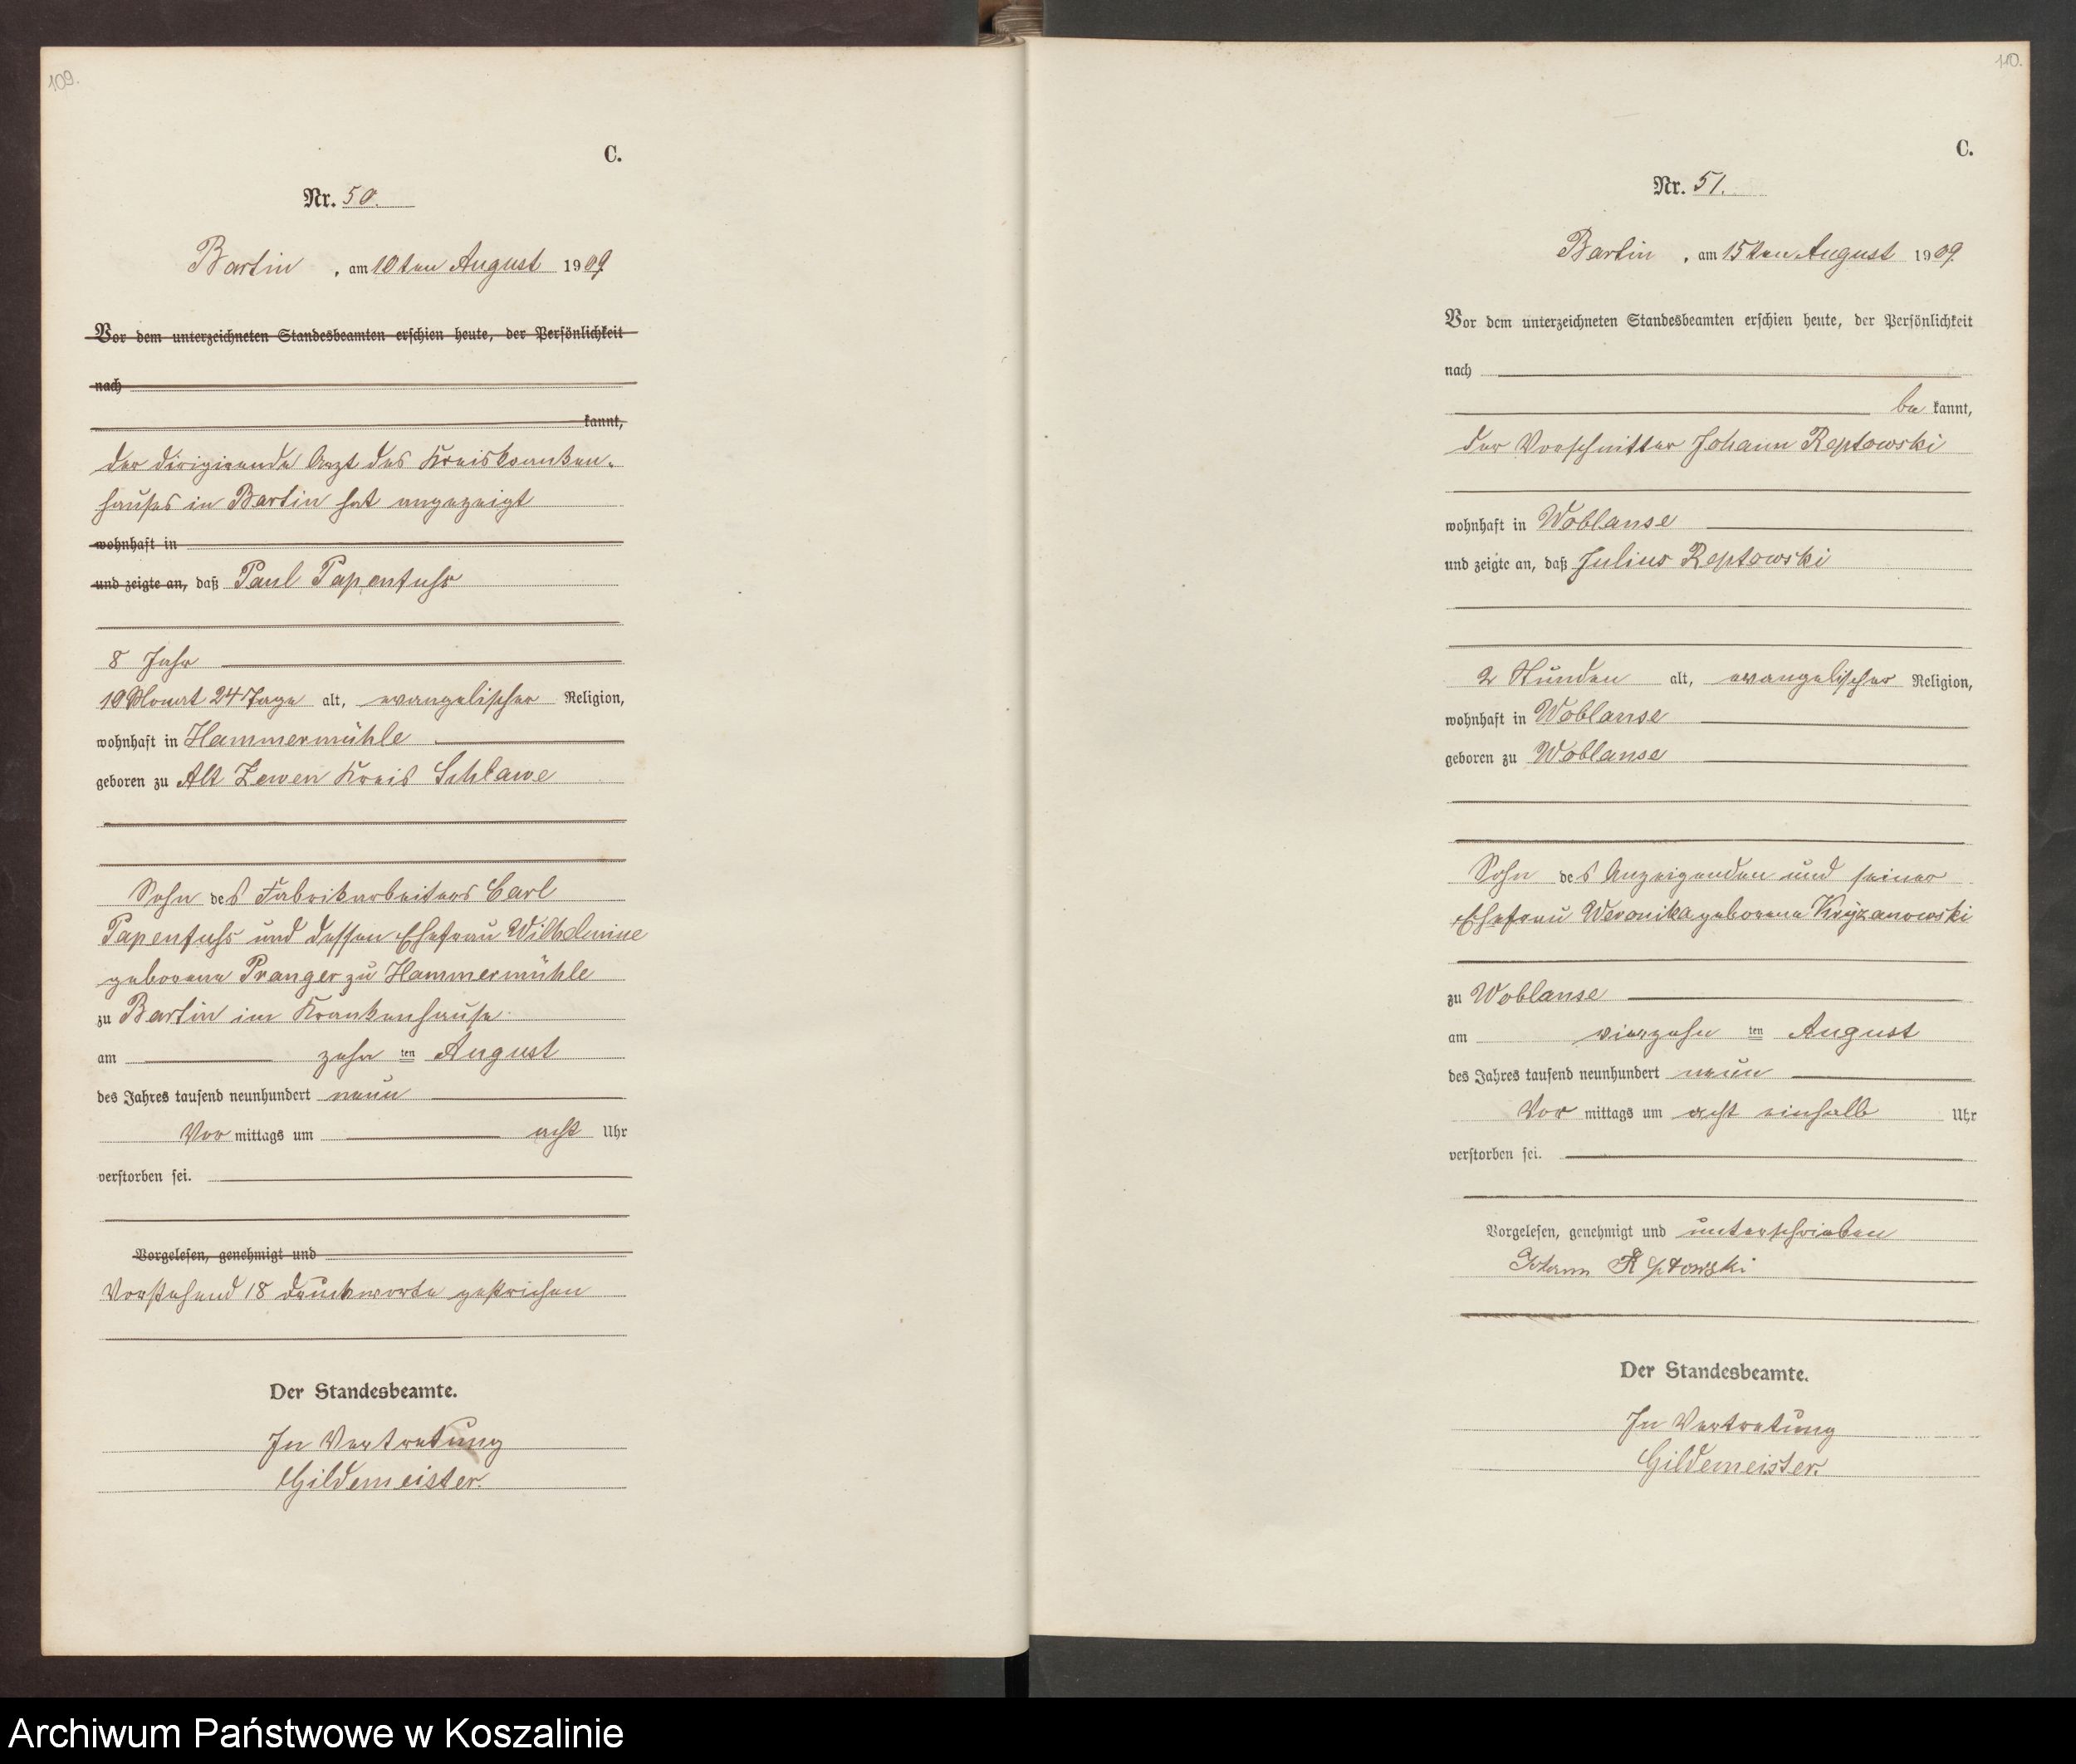 109.
C.
Nr. 50.
Bartin, am 10ten August 1909.
Vor dem unterzeichneten Standesbeamten erschien heute, der Persönlichkeit
nach
kannt,
der dirigirende Arzt des Kreiskranken-
hauses in Bartin hat angezeigt
wohnhaft in
und zeigte an, daß Paul Papenfuhs
8 Jahr
10 Monat 24 Tage alt, evangelischer Religion,
wohnhaft in Hammermühle
geboren zu Alt Zowen Kreis Schlawe
Sohn des Fabrikarbeiters Carl
Papenfuhs und dessen Ehefrau Wilhelmine
geborene Pranger zu Hammermühle
zu Bartin im Krankenhause
am zehn ten August
des Jahres tausend neunhundert neun
Vor mittags um acht Uhr
verstorben sei.
Vorgelesen, genehmigt und
Vorstehend 18 Druckworte gestrichen
Der Standesbeamte.
In Vertretung
Gildemeister.
110.
C.
Nr. 51.
Bartin, am 15ten August 1909.
Vor dem unterzeichneten Standesbeamten erschien heute, der Persönlichkeit
nach
be kannt,
der Vorschnitter Johann Reptowski
wohnhaft in Woblanse
und zeigte an, daß Julius Reptowski
2 Stunden alt, evangelischer Religion,
wohnhaft in Woblanse
geboren zu Woblanse
Sohn des Anzeigenden und seiner
Ehefrau Weronika geborene Kryzanowski
zu Woblanse
am vierzehn ten August
des Jahres tausend neunhundert neun
Vor mittags um acht einhalb Uhr
verstorben sei.
Vorgelesen, genehmigt und unterschrieben
Johann Reptowski
Der Standesbeamte.
In Vertretung
Gildemeister.
Archiwum Państwowe w Koszalinie